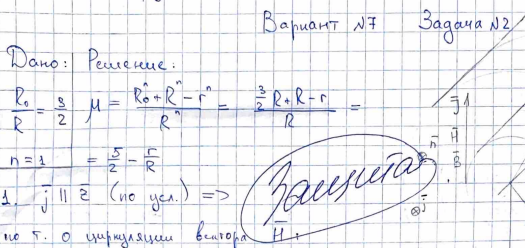 Вариант №7 Задача №2
Дано: Решение:
R₀/R = 3/2 μ = (R₀ⁿ + Rⁿ - rⁿ)/Rⁿ = (3/2 R + R - r)/R =
n = 1 = 5/2 - r/R
1. j̄ || z̄ (по усл.) =>
по т. о циркуляции вектора H̄:
Защита
j̄
n̄ H̄
B̄
⊗ j̄